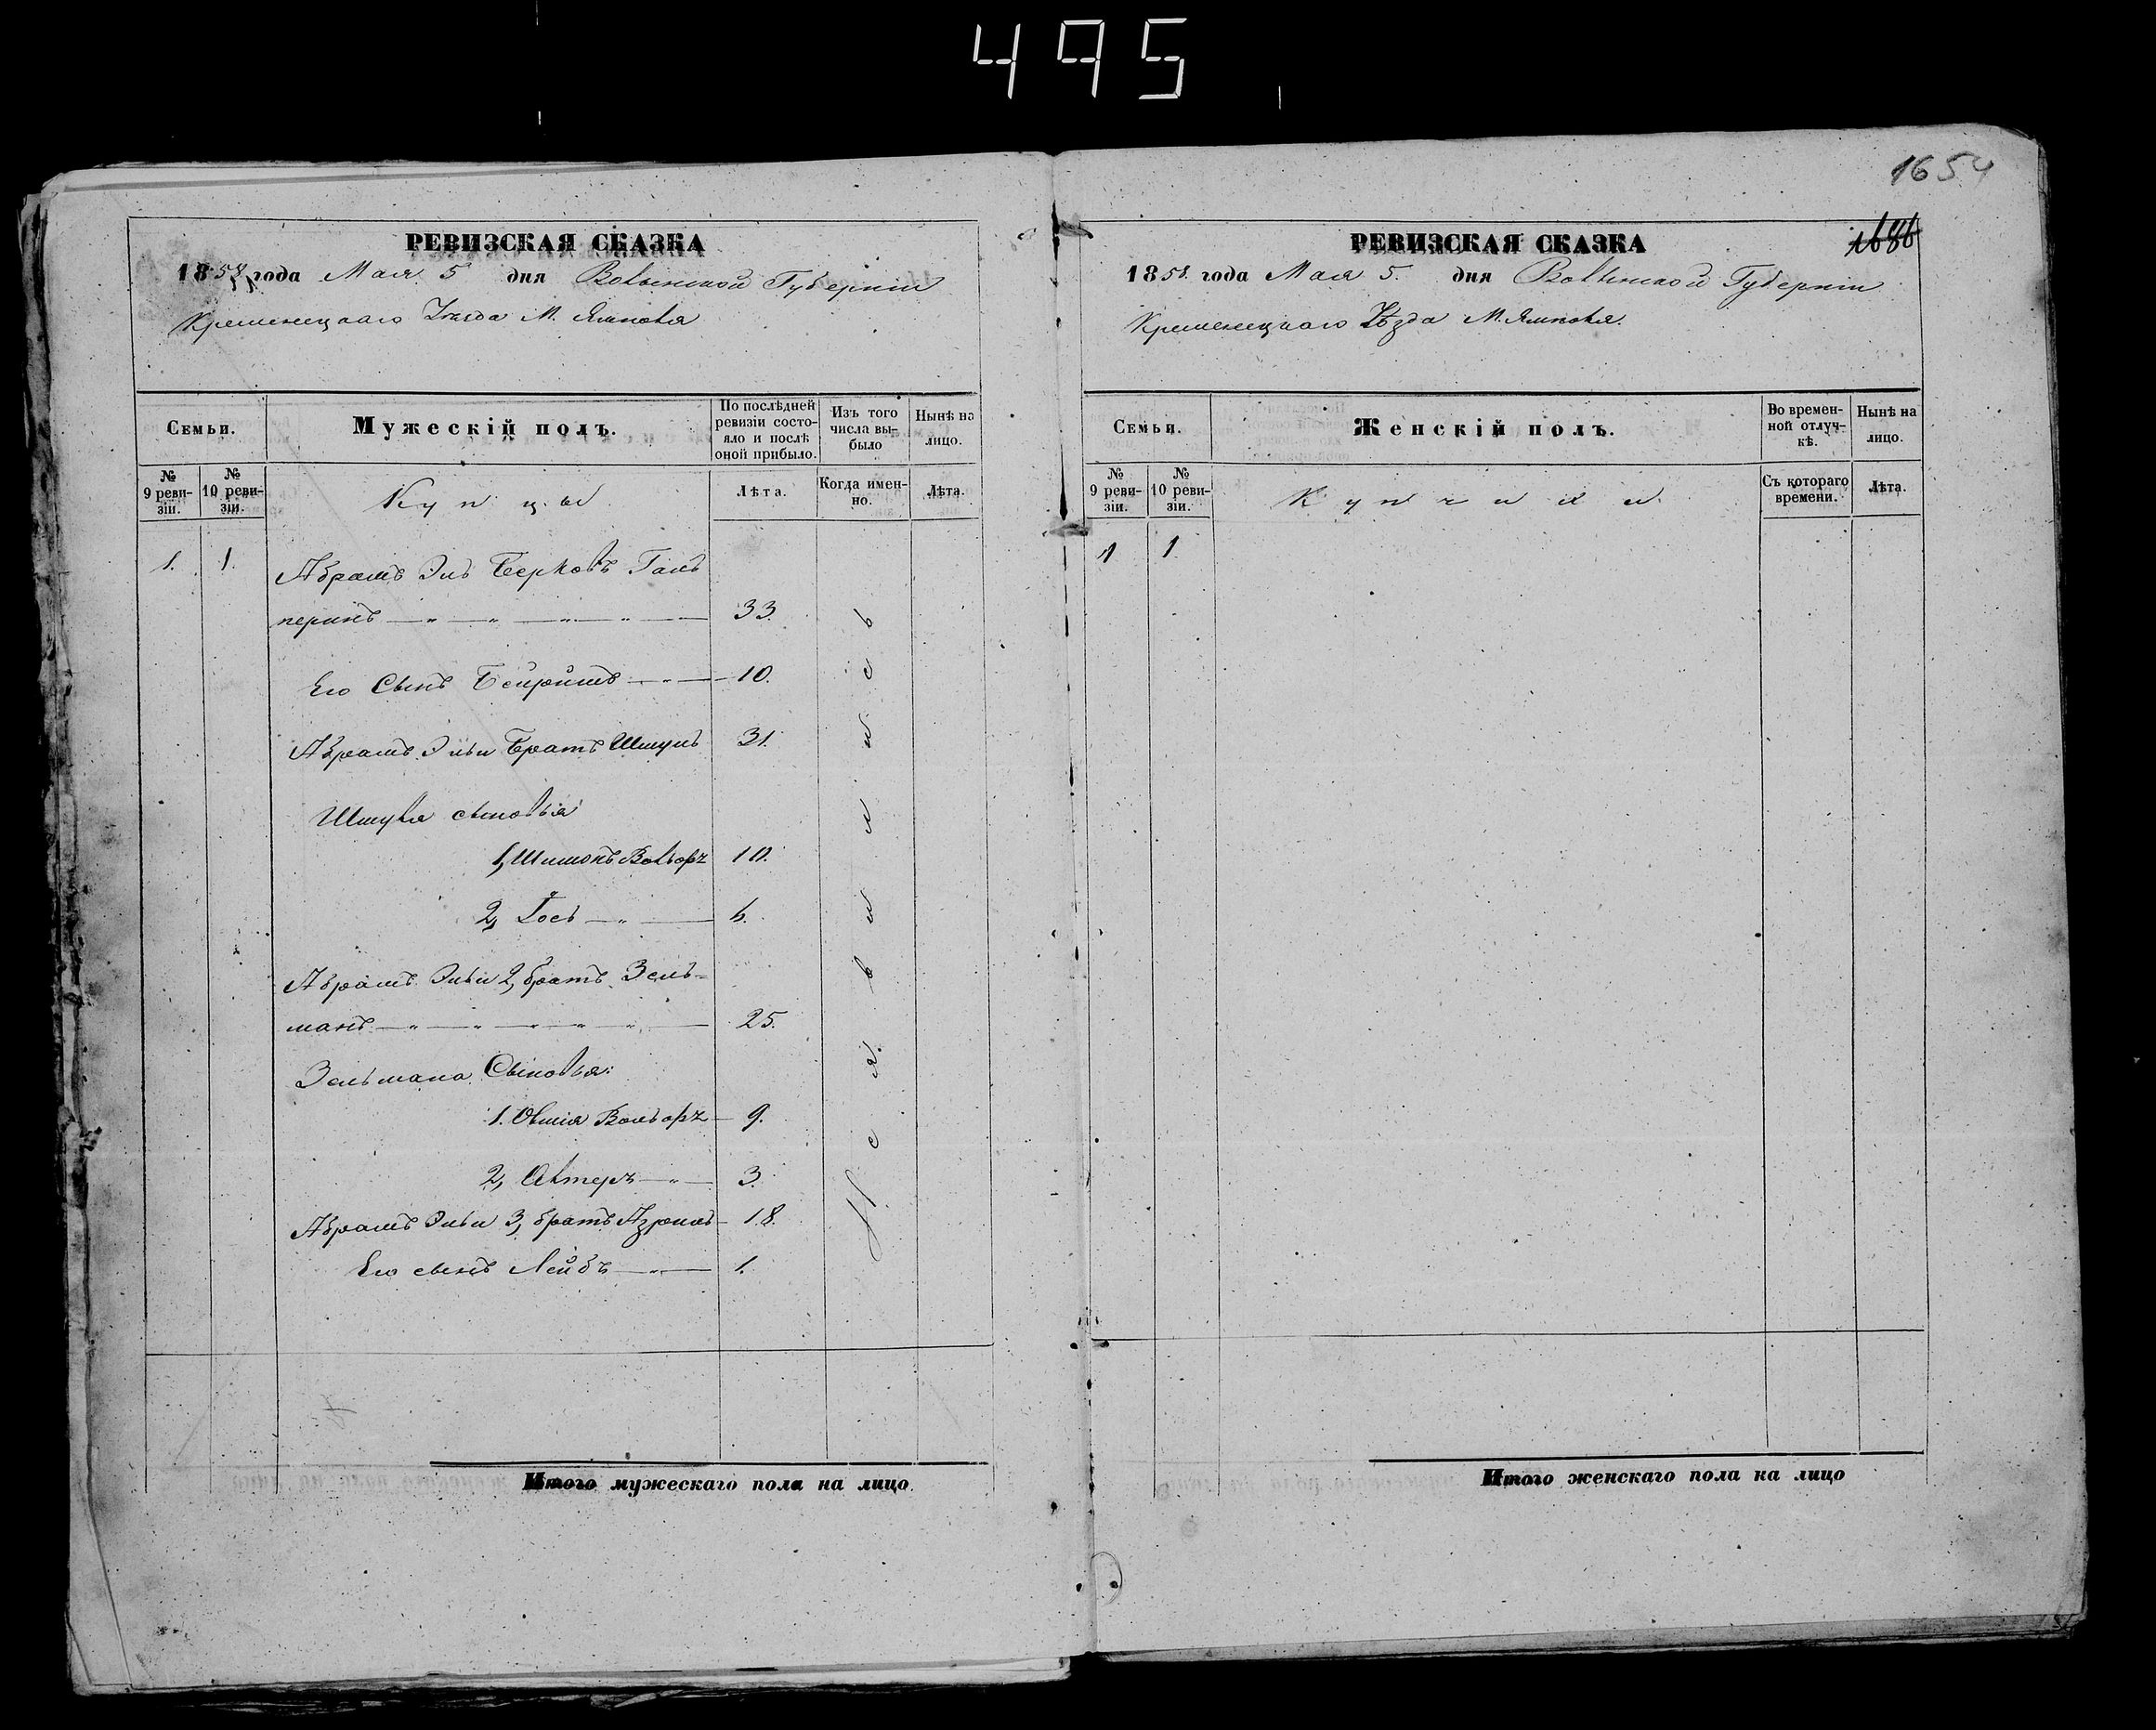 495
1654
РЕВИЗСКАЯ СКАЗКА
1858 года Мая 5 дня Волынской Губерніи
Кременецкаго Уезда М. Ямполя
Семьи.
Мужескій полъ.
По послѣдней ревизіи состояло и послѣ оной прибыло.
Изъ того числа выбыло
Нынѣ на лицо.
№ 9 ревизіи.
№ 10 ревизіи.
Купцы
Лѣта.
Когда именно.
Лѣта.
1. 1. Абрамъ Эль Берковъ Галь
перинъ 33.
Его Сынъ Бейришъ 10.
Абрамъ Эльи Братъ Шмуль 31.
Шмуля сыновья
1, Шимонъ Вольфъ 10.
2, Іось 6.
Абрамъ Эльи 2, братъ Зель-
манъ 25.
Зельмана Сыновья:
1. Овшія Вольфъ 9.
2, Алтеръ 3.
Абрамъ Эльи 3, братъ Азриль 18.
Его сынъ Лейбъ 1.
Не явились
Итого мужескаго пола на лицо.
1686
РЕВИЗСКАЯ СКАЗКА
1858 года Мая 5. дня Волынской Губерніи
Кременецкаго Уѣзда М. Ямполя.
Семьи.
Женскій полъ.
Во временной отлучкѣ.
Нынѣ на лицо.
№ 9 ревизіи.
№ 10 ревизіи.
Купчихи
Съ котораго времени.
Лѣта.
1 1
Итого женскаго пола на лицо